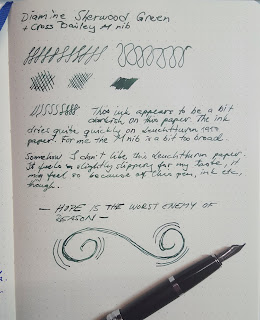 Diamine Sherwood Green
+ Cross Bailey M nib
This ink appears to be a bit
darkish on this paper. The ink
dries quite quickly on Leuchtturm 1917
paper. For me the M nib is a bit too broad.
Somehow I don't like this Leuchtturm paper.
It feels slightly slippery for my taste, it
may feel so because of this pen, ink etc,
though.
— HOPE IS THE WORST ENEMY OF
REASON —